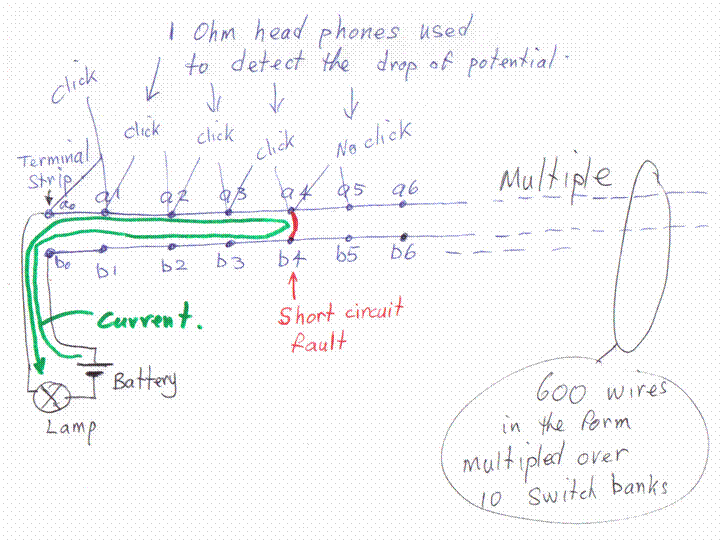 1 Ohm head phones used
to detect the drop of potential.
click
click
click
click
No click
Terminal
Strip
a0 a1 a2 a3 a4 a5 a6
Multiple
b0 b1 b2 b3 b4 b5 b6
Current.
Short circuit
fault
Battery
Lamp
600 wires
in the form
multipled over
10 switch banks